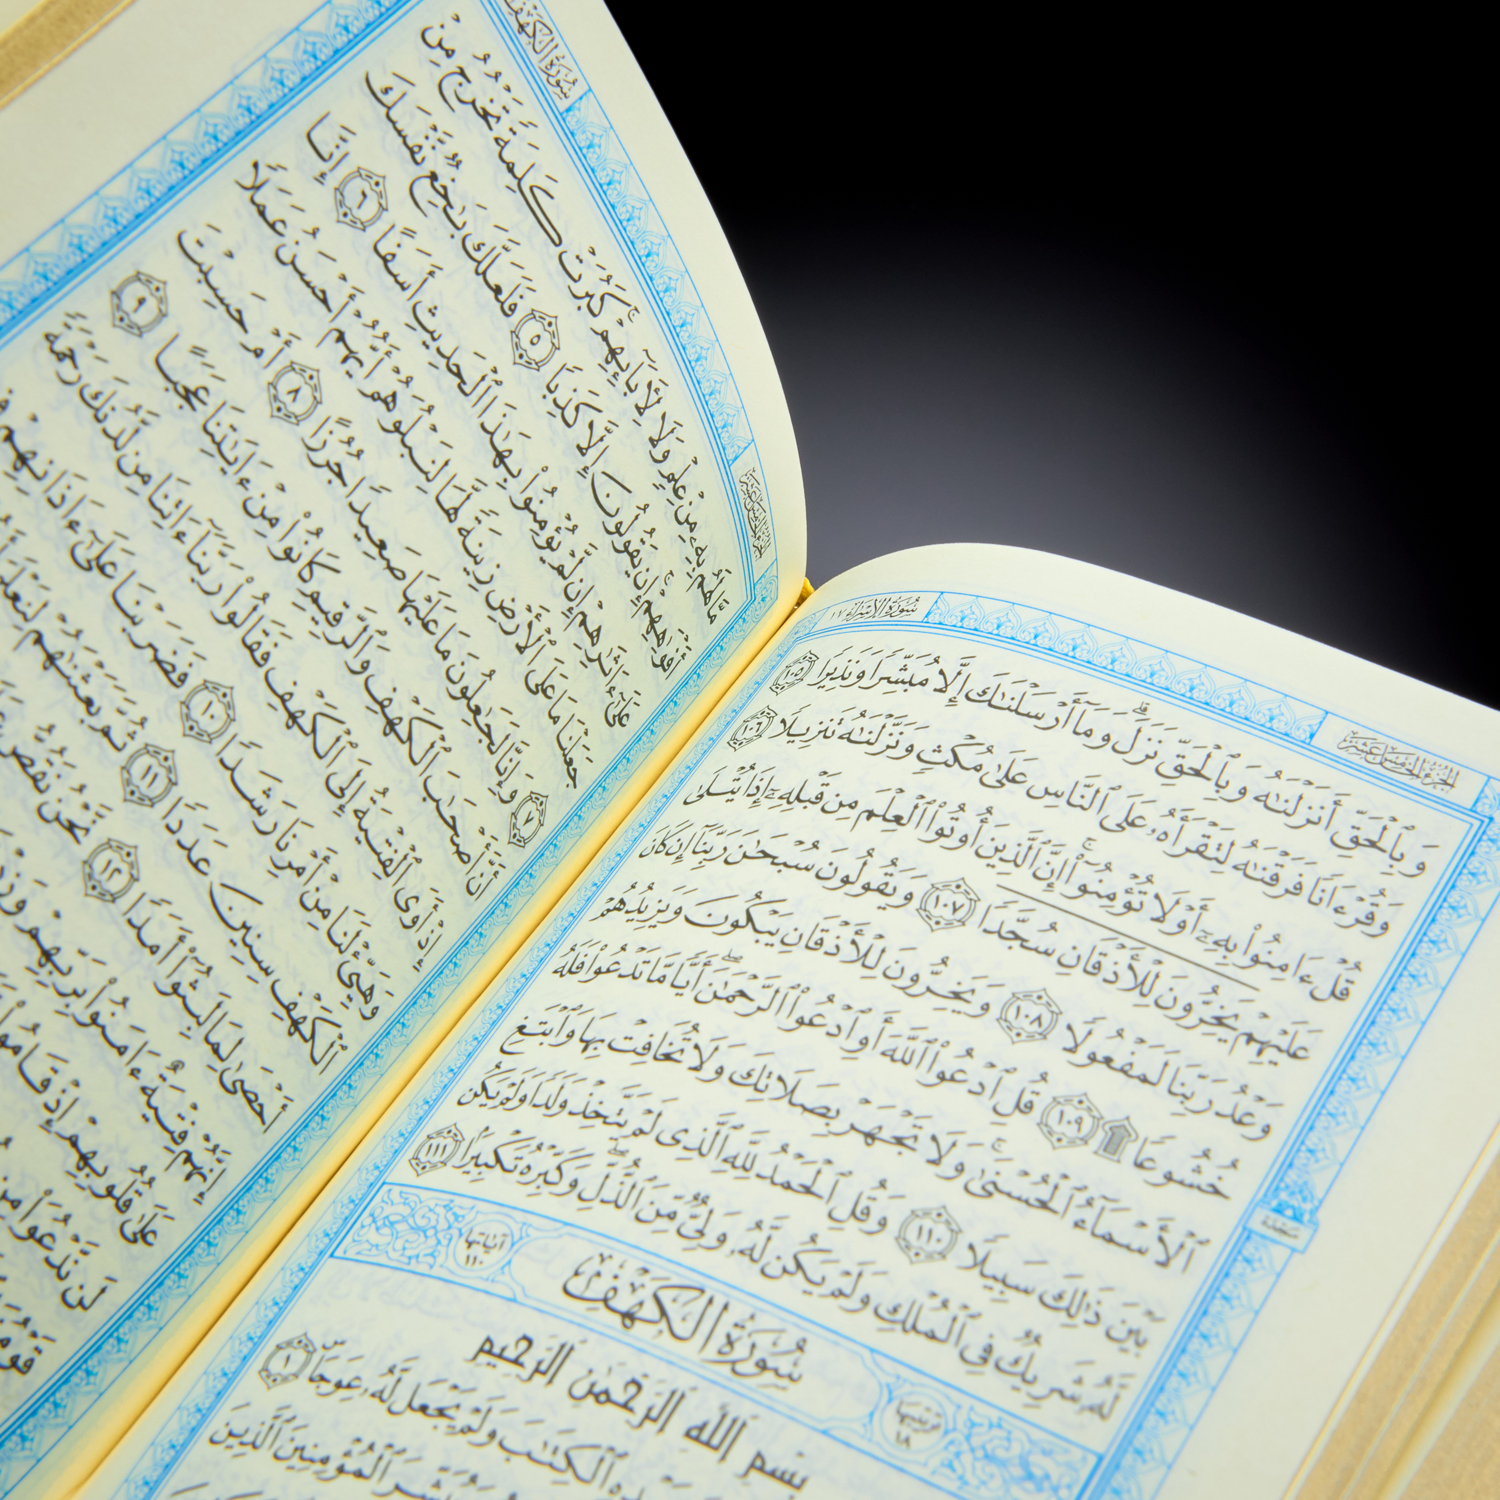 سُورَةُ الإِسْرَاءِ ١٧
الجُزْءُ الخَامِسَ عَشَرَ
وَبِٱلْحَقِّ أَنزَلْنَـٰهُ وَبِٱلْحَقِّ نَزَلَ ۗ وَمَآ أَرْسَلْنَـٰكَ إِلَّا مُبَشِّرًا وَنَذِيرًا ١٠٥
وَقُرْءَانًا فَرَقْنَـٰهُ لِتَقْرَأَهُۥ عَلَى ٱلنَّاسِ عَلَىٰ مُكْثٍ وَنَزَّلْنَـٰهُ تَنزِيلًا ١٠٦
قُلْ ءَامِنُوا۟ بِهِۦٓ أَوْ لَا تُؤْمِنُوٓا۟ ۚ إِنَّ ٱلَّذِينَ أُوتُوا۟ ٱلْعِلْمَ مِن قَبْلِهِۦٓ إِذَا يُتْلَىٰ
عَلَيْهِمْ يَخِرُّونَ لِلْأَذْقَانِ سُجَّدًا ١٠٧ وَيَقُولُونَ سُبْحَـٰنَ رَبِّنَآ إِن كَانَ
وَعْدُ رَبِّنَا لَمَفْعُولًا ١٠٨ وَيَخِرُّونَ لِلْأَذْقَانِ يَبْكُونَ وَيَزِيدُهُمْ
خُشُوعًا ١٠٩ قُلِ ٱدْعُوا۟ ٱللَّهَ أَوِ ٱدْعُوا۟ ٱلرَّحْمَـٰنَ ۖ أَيًّا مَّا تَدْعُوا۟ فَلَهُ
ٱلْأَسْمَآءُ ٱلْحُسْنَىٰ ۚ وَلَا تَجْهَرْ بِصَلَاتِكَ وَلَا تُخَافِتْ بِهَا وَٱبْتَغِ
بَيْنَ ذَٰلِكَ سَبِيلًا ١١٠ وَقُلِ ٱلْحَمْدُ لِلَّهِ ٱلَّذِى لَمْ يَتَّخِذْ وَلَدًا وَلَمْ يَكُن
لَّهُۥ شَرِيكٌ فِى ٱلْمُلْكِ وَلَمْ يَكُن لَّهُۥ وَلِىٌّ مِّنَ ٱلذُّلِّ ۖ وَكَبِّرْهُ تَكْبِيرًۢا ١١١
سَجْدَة
تَرتيبُهَا ١٨
سُورَةُ الكَهْفِ
آيَاتُهَا ١١٠
بِسْمِ ٱللَّهِ ٱلرَّحْمَـٰنِ ٱلرَّحِيمِ
ٱلْكِتَـٰبَ وَلَمْ يَجْعَل لَّهُۥ عِوَجَا ۜ ١
ٱلْمُؤْمِنِينَ ٱلَّذِينَ
سُورَةُ الكَهْفِ
مَّا لَهُم بِهِۦ مِنْ عِلْمٍ وَلَا لِـَٔابَآئِهِمْ ۚ كَبُرَتْ كَلِمَةً تَخْرُجُ مِنْ
أَفْوَٰهِهِمْ ۚ إِن يَقُولُونَ إِلَّا كَذِبًا ٥ فَلَعَلَّكَ بَـٰخِعٌ نَّفْسَكَ
عَلَىٰٓ ءَاثَـٰرِهِمْ إِن لَّمْ يُؤْمِنُوا۟ بِهَـٰذَا ٱلْحَدِيثِ أَسَفًا ٦ إِنَّا
جَعَلْنَا مَا عَلَى ٱلْأَرْضِ زِينَةً لَّهَا لِنَبْلُوَهُمْ أَيُّهُمْ أَحْسَنُ عَمَلًا
٧ وَإِنَّا لَجَـٰعِلُونَ مَا عَلَيْهَا صَعِيدًا جُرُزًا ٨ أَمْ حَسِبْتَ
أَنَّ أَصْحَـٰبَ ٱلْكَهْفِ وَٱلرَّقِيمِ كَانُوا۟ مِنْ ءَايَـٰتِنَا عَجَبًا ٩
إِذْ أَوَى ٱلْفِتْيَةُ إِلَى ٱلْكَهْفِ فَقَالُوا۟ رَبَّنَآ ءَاتِنَا مِن لَّدُنكَ رَحْمَةً
وَهَيِّئْ لَنَا مِنْ أَمْرِنَا رَشَدًا ١٠ فَضَرَبْنَا عَلَىٰٓ ءَاذَانِهِمْ
ٱلْكَهْفِ سِنِينَ عَدَدًا ١١ ثُمَّ بَعَثْنَـٰهُمْ لِنَعْلَمَ
أَحْصَىٰ لِمَا لَبِثُوٓا۟ أَمَدًا ١٢ نَّحْنُ نَقُصُّ
إِنَّهُمْ فِتْيَةٌ ءَامَنُوا۟ بِرَبِّهِمْ
عَلَىٰ قُلُوبِهِمْ إِذْ قَامُوا۟
لَن نَّدْعُوَا۟ مِن